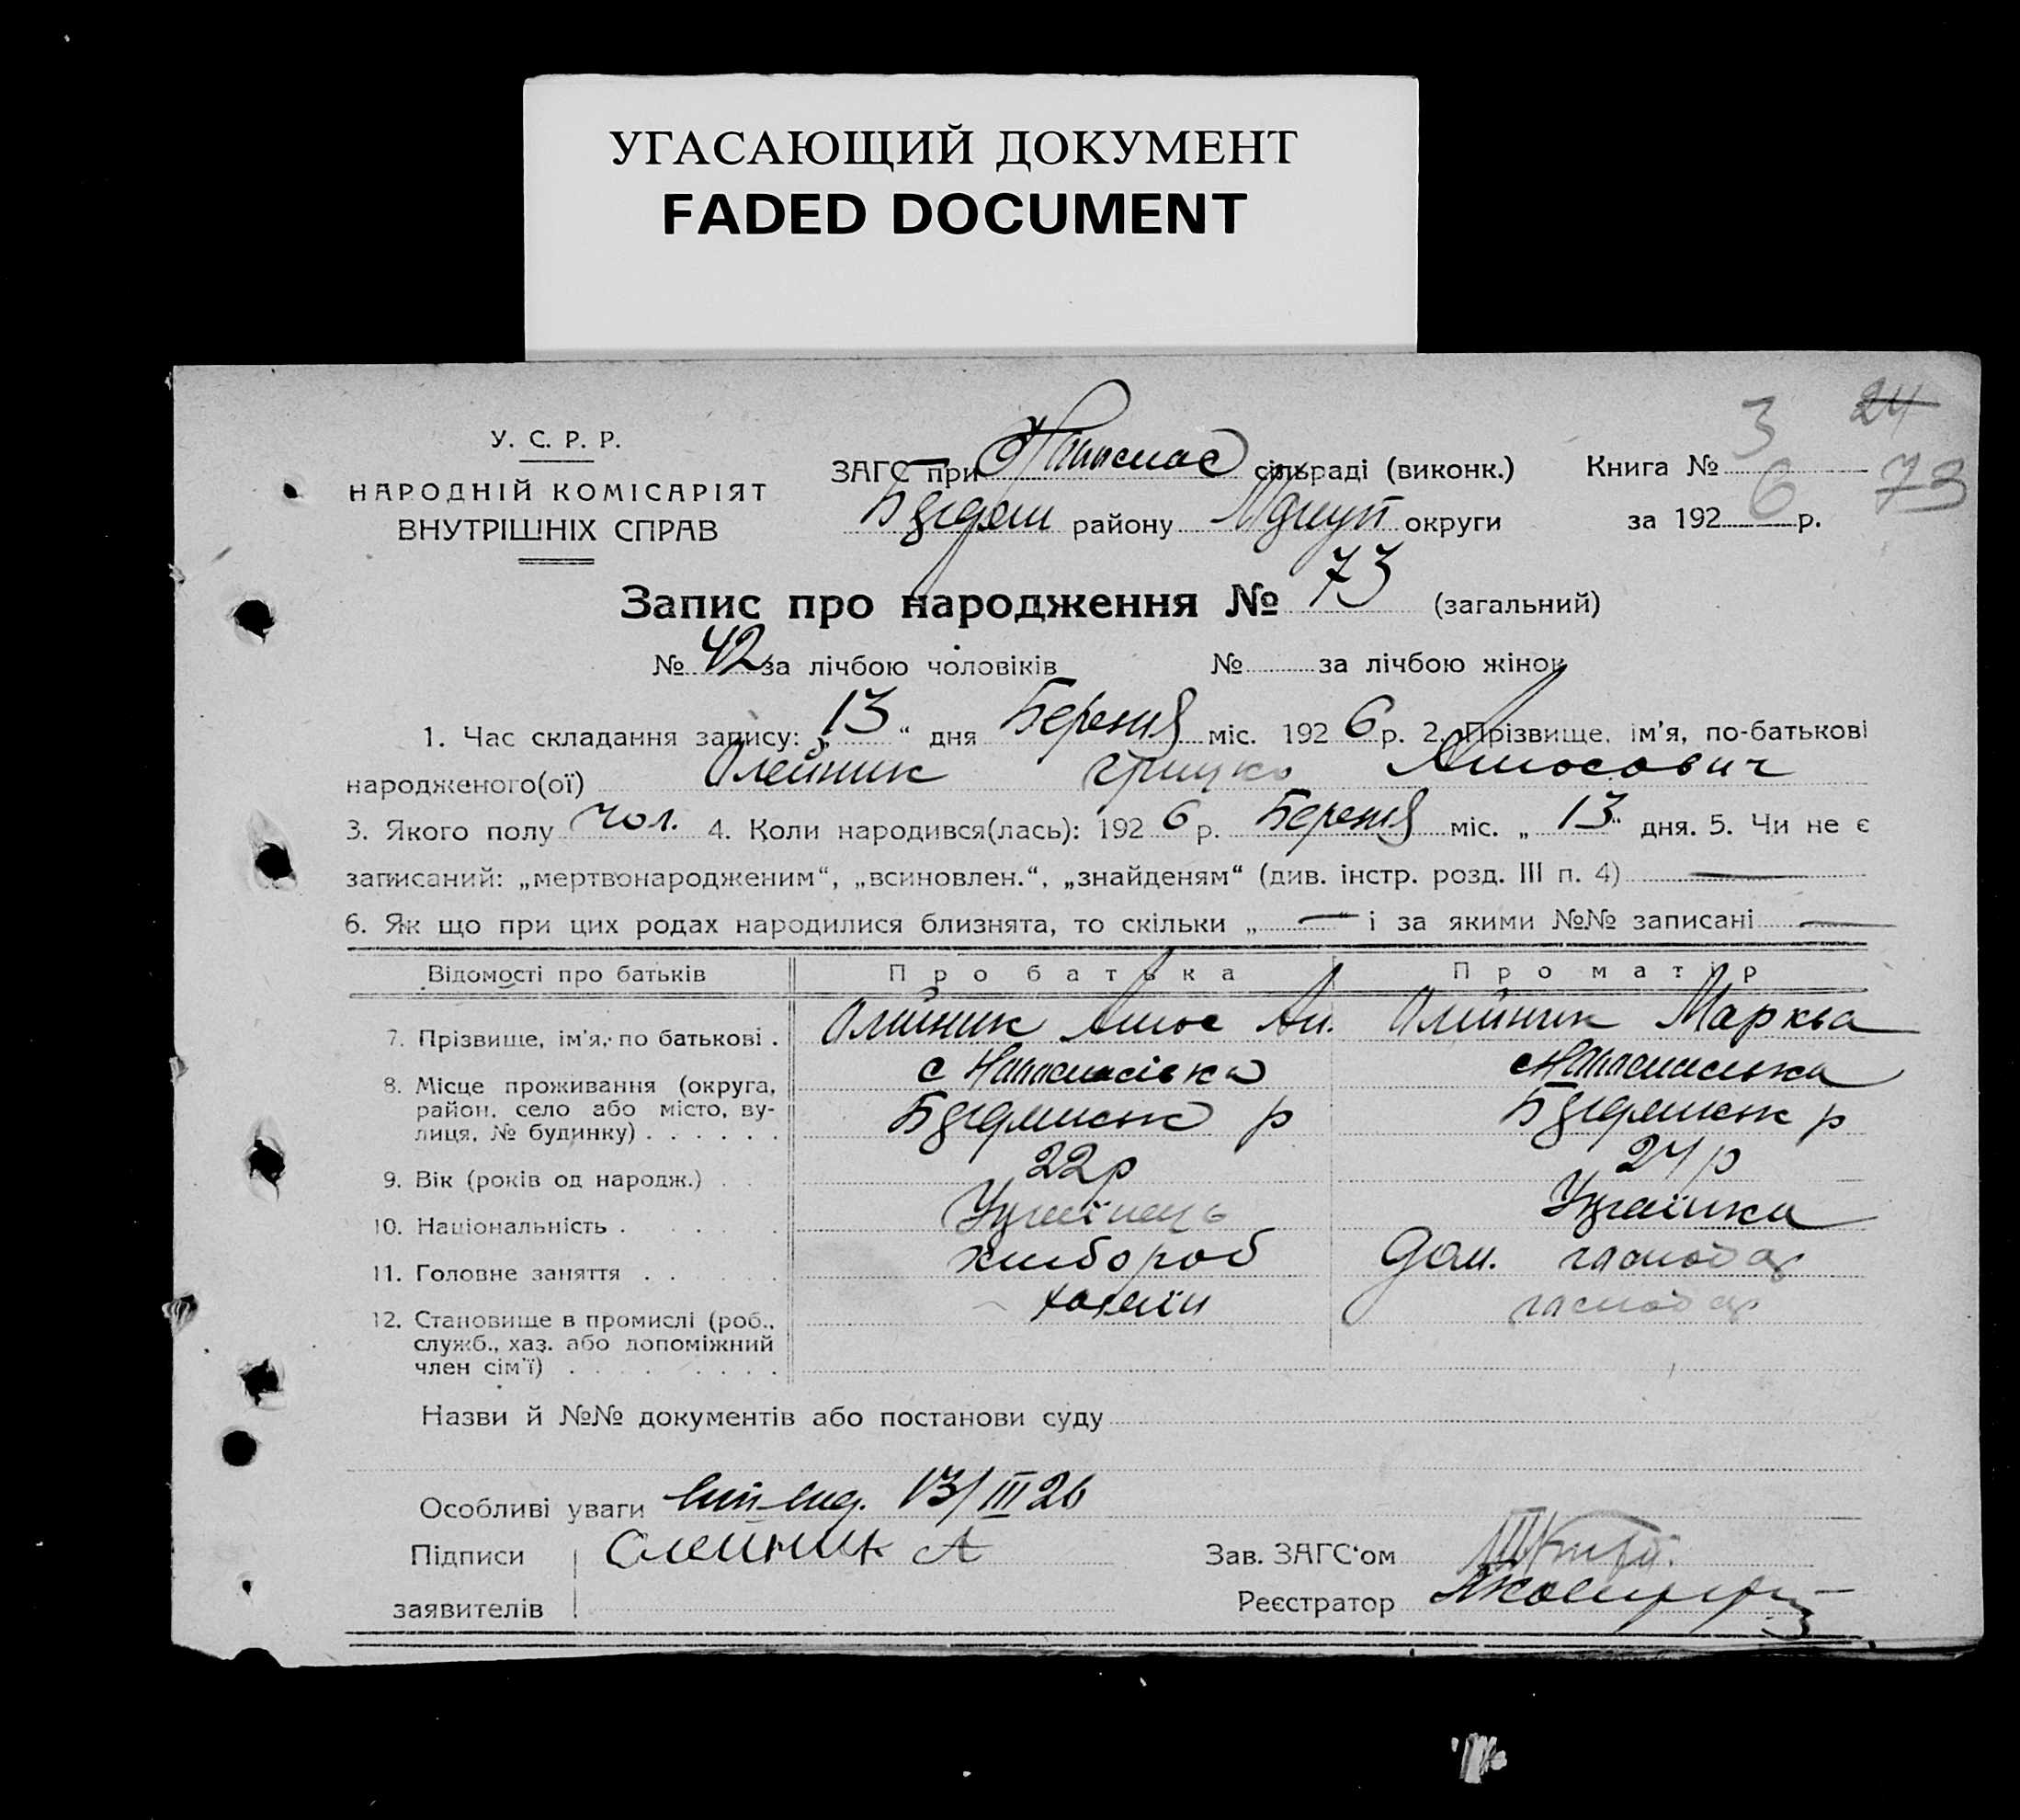 УГАСАЮЩИЙ ДОКУМЕНТ
FADED DOCUMENT
У. С. Р. Р.
НАРОДНІЙ КОМІСАРІЯТ
ВНУТРІШНІХ СПРАВ
ЗАГС при сільраді (виконк.)
району округи
Книга № 3
24
за 1926 р.
73
Запис про народження № 73 (загальний)
№ 42 за лічбою чоловіків № за лічбою жінок
1. Час складання запису: „13“ дня Березня міс. 1926 р. 2. Прізвище, ім'я, по-батькові
народженого(ої) Олейник Грицко Амосович
3. Якого полу чол. 4. Коли народився(лась): 1926 р. Березня міс. „13“ дня. 5. Чи не є
записаний: „мертвонародженим“, „всиновлен.“, „знайденям“ (див. інстр. розд. III п. 4) —
6. Як що при цих родах народилися близнята, то скільки „—“ і за якими №№ записані —
Відомості про батьків Про батька Про матір
7. Прізвище, ім'я, по батькові . Олійник Амос Ан. Олійник Марква
8. Місце проживання (округа,
район, село або місто, ву-
лиця, № будинку) . . . . . .
с р
р
9. Вік (років од народж.) . . 22р 24р
10. Національність . . . . Українець Українка
11. Головне заняття . . . . хлібороб Дом. господар
12. Становище в промислі (роб.,
служб., хаз. або допоміжний
член сім'ї) . . . . . . . .
хазяїн господар
Назви й №№ документів або постанови суду
Особливі уваги 13/III 26
Підписи Олейник А
заявителів
Зав. ЗАГС'ом
Реєстратор